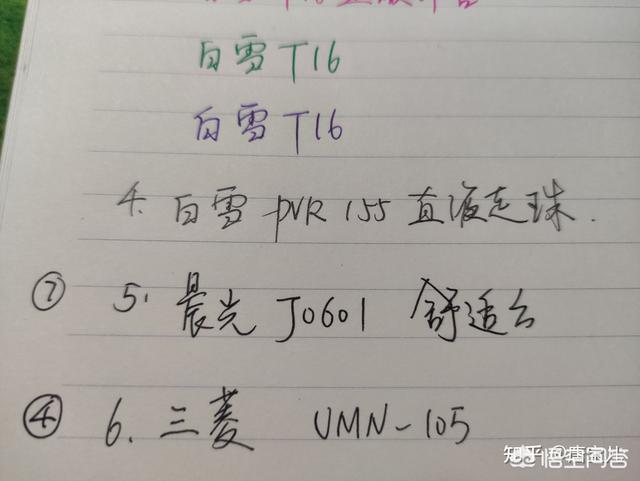 白雪T16
白雪T16
4. 白雪 PVR 155 直液走珠.
② 5. 晨光 J0601 舒适云
④ 6. 三菱 UMN-105
知乎
悟空问答